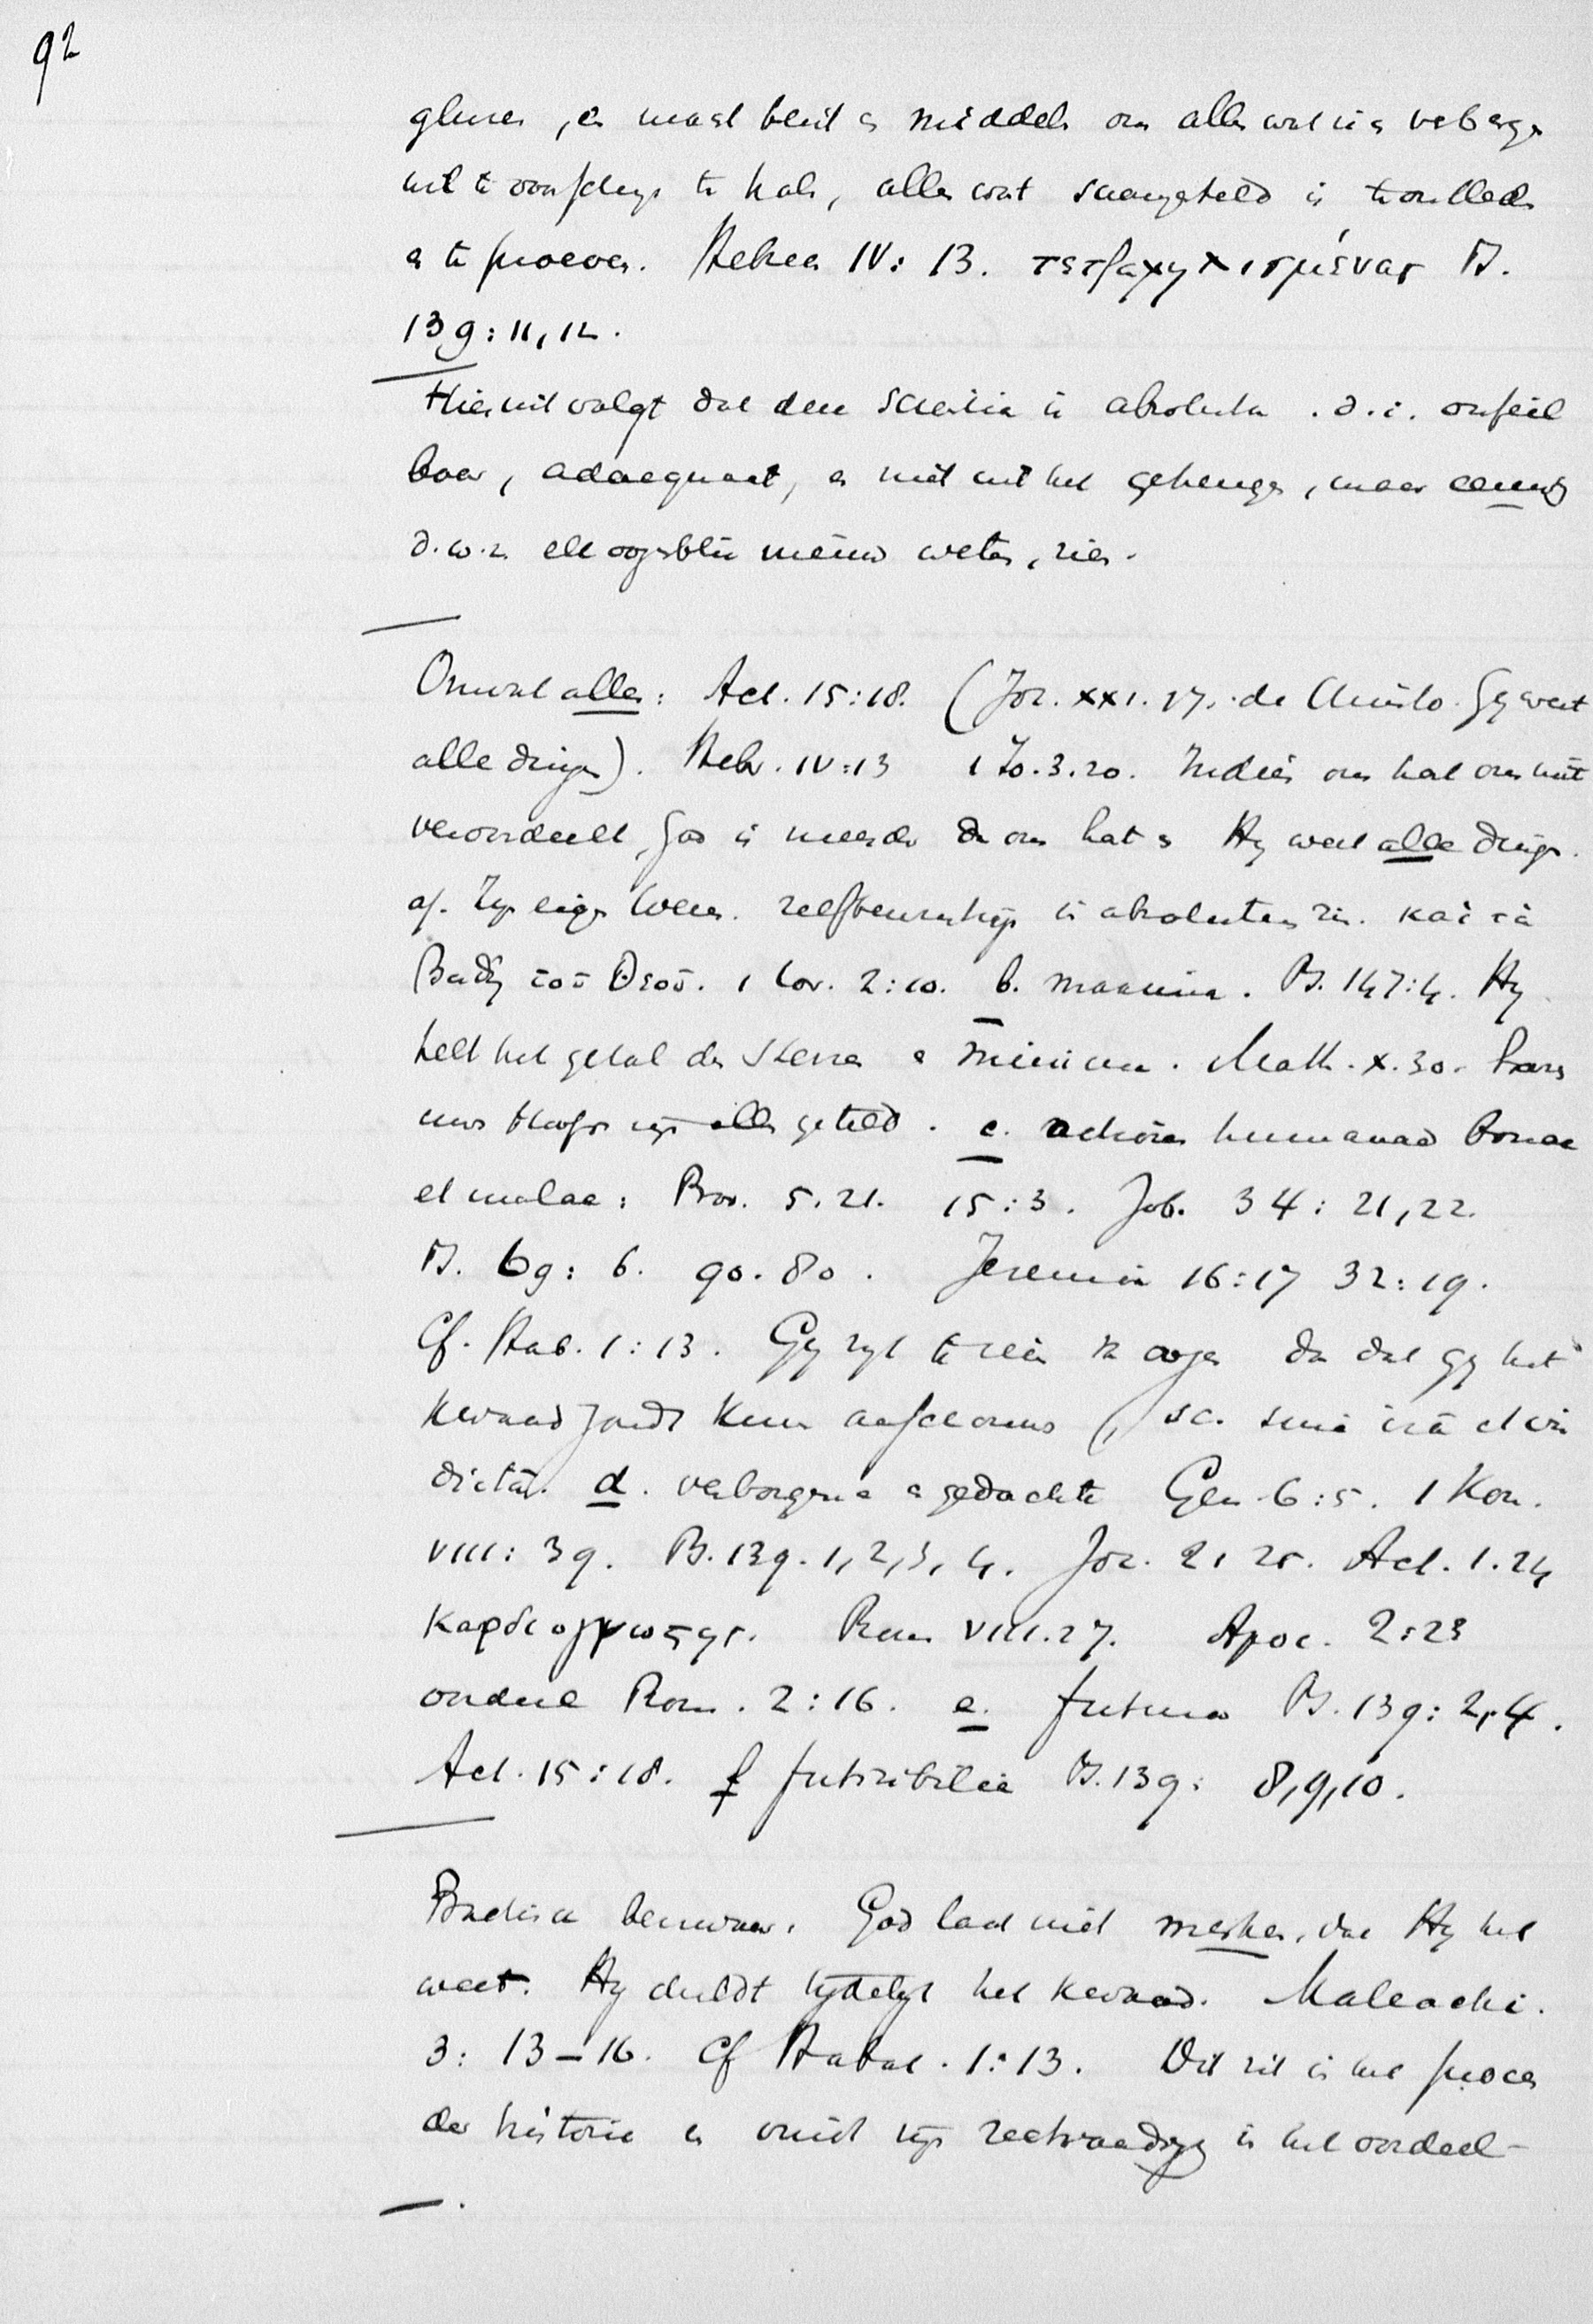 92
, en middelen om alles wat is verborgen
uit te halen, alles wat is
en te proeven. Hebr. IV: 13. τετραχηλισμένα Ps.
139: 11, 12.
Hieruit volgt dat deze scientia is absoluta . d.i. onfeil
baar, adaequaat, en niet uit het geheugen, maar eeuwig
d.w.z. elk oogenblik nieuw weten, zien.
Omvat alles: Act. 15:18. (Joz. XXI. 17. de Christo. Gij weet
alle dingen). Hebr. IV:13 1 Jo. 3.20. Indien ons hart ons niet
veroordeelt, God is meerder dan ons hart en Hij weet alle dingen.
a/. Zijn eigen Wezen. zelfbewustzijn in absoluten zin. καὶ τὰ
βάθη τοῦ Θεοῦ. 1 Cor. 2:10. b. maxima. Ps. 147:4. Hij
telt het getal der sterren en minima. Matth. X.30. haren
uws hoofds zijn alle geteld. c. actiones humanae bonae
et malae: Prov. 5.21. 15:3. Job. 34: 21,22.
Ps. 69: 6. 90. 80. Jeremia 16:17 32:19.
Cf. Hab. 1:13. Gij zijt te rein van oogen dan dat gij het
kwaad zoudt kunnen aanschouwen (, sc. sine irâ et vin
dictâ. d. verborgene gedachten Gen. 6:5. 1 Kon.
VIII: 39. Ps. 139. 1, 2, 3, 4. Joz. 2, 25. Act. 1.24
καρδιογνωστης. Rom VIII.27. Apoc. 2:23
oordeel Rom. 2:16. e. futura Ps. 139: 2, 4.
Act. 15:18. f futuribilia Ps. 139: 8, 9, 10.
bezwaar. God laat niet merken, dat Hij het
weet. Hij duldt tijdelijk het kwaad. Maleachi.
3: 13–16. Cf Habak. 1:13. Dit zit in het proces
der historie en vindt zijn rechtvaardiging in het oordeel –